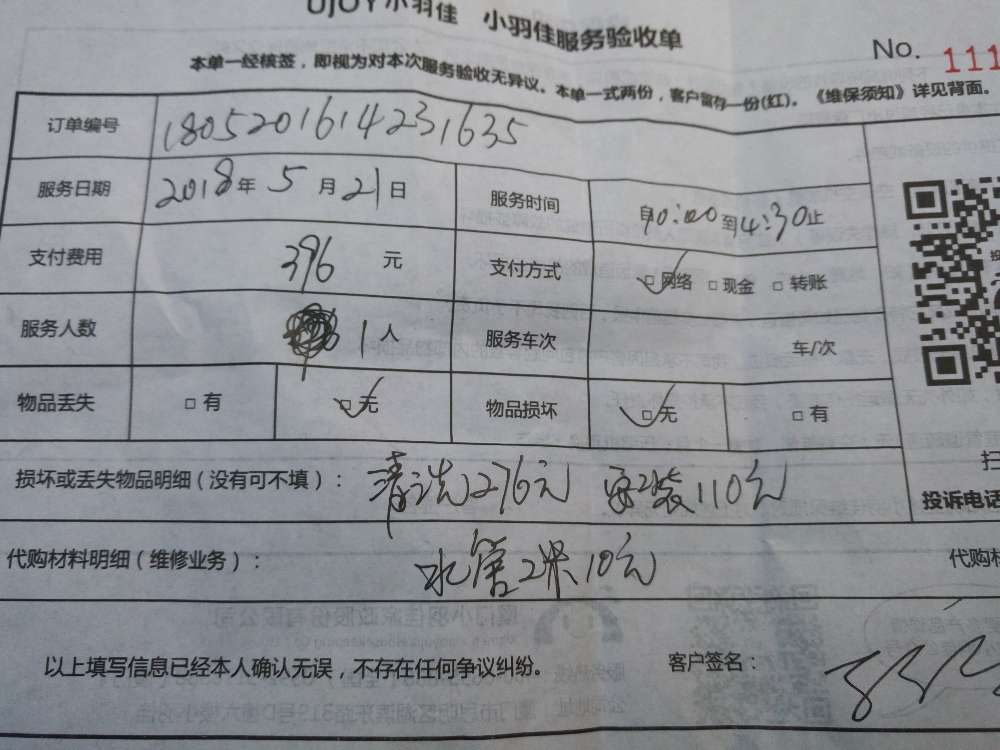 UJOY小羽佳 小羽佳服务验收单
No. 111
本单一经核签，即视为对本次服务验收无异议。本单一式两份，客户留存一份(红)。《维保须知》详见背面。
订单编号 1805201614231635
服务日期 2018年5月21日 服务时间 到4:30止
支付费用 396 元 支付方式 □网络 □现金 □转账
服务人数 1人 服务车次 车/次
物品丢失 □有 □无 物品损坏 □无 □有
扫
投诉电话
损坏或丢失物品明细（没有可不填）： 清洗276元 安装110元
代购材料明细（维修业务）： 水管2米10元
代购材
以上填写信息已经本人确认无误，不存在任何争议纠纷。 客户签名：